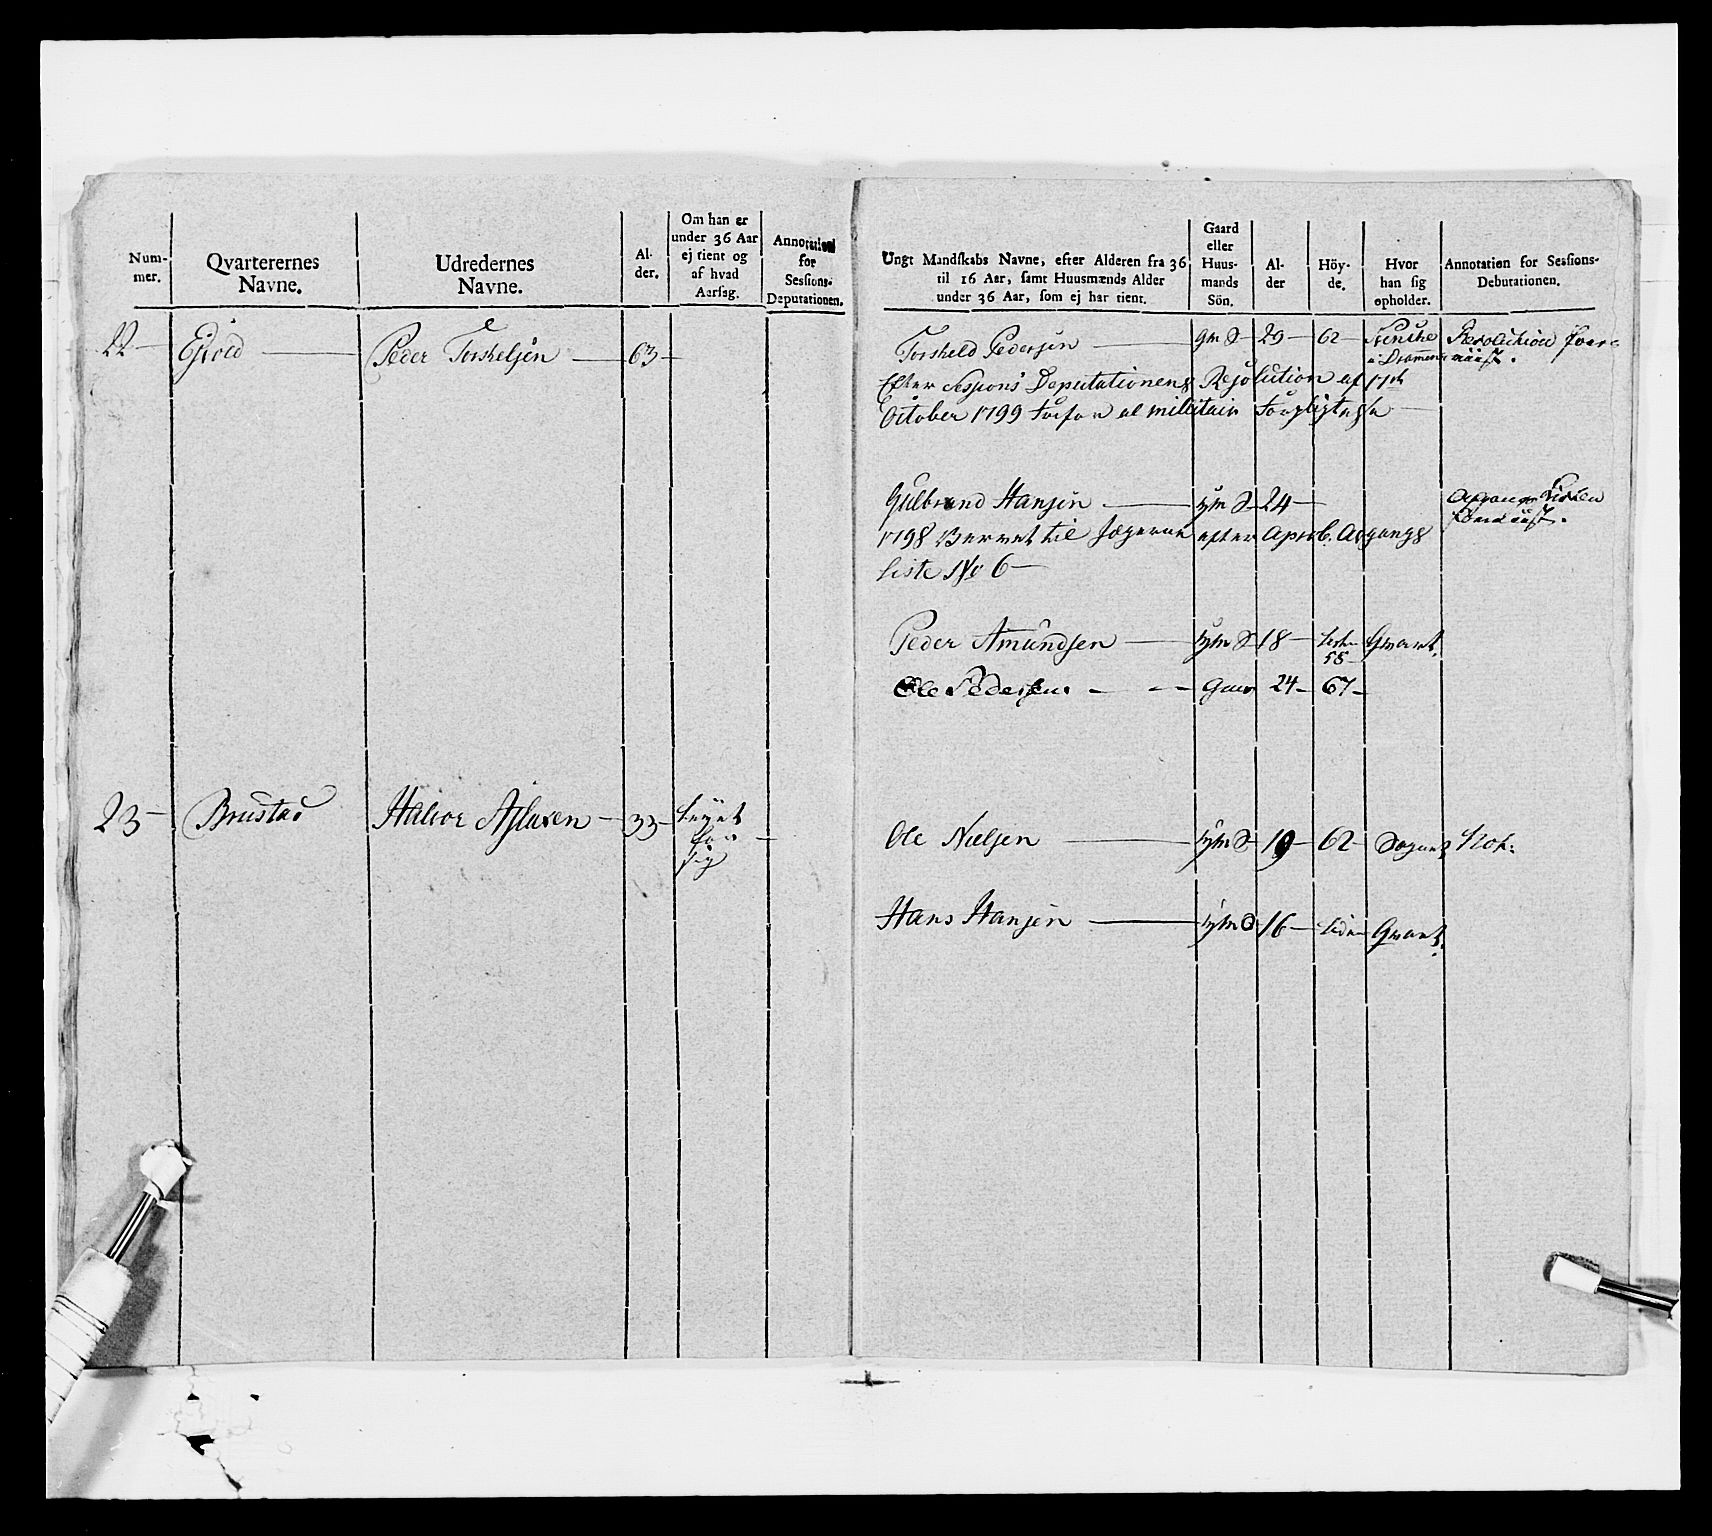 Num-
mer.
Qvarterernes
Navne.
Udredernes
Navne.
Al-
der.
Om han er
under 36 Aar
ej tient og
af hvad
Aarsag.
Annotation
for
Sessions-
Deputationen.
22
Peder Torkelsen
63
23
Brustad
Halvor Aslaxen
33
for
sig
Ungt Mandskabs Navne, efter Alderen fra 36
til 16 Aar, samt Huusmænds Alder
under 36 Aar, som ej har tient.
Gaard
eller
Huus-
mands
Sön.
Al-
der
Höy-
de.
Hvor
han sig
opholder.
Annotation for Sessions-
Debutationen.
Torkeld Pedersen gm S 29 62
i Drammen
Efter Sessions Deputationens Resolution af 17de
October 1799 al militair
Gulbrand Hansen hm S 24
1798 til Jægerne efter Aprob. Afgangs
Liste No 6
Peder Amundsen hm S 18
58
Gvart.
Ole Pedersen 24 67
Ole Nielsen hm S 19 62
Hans Hansen hm S 16 Gvart.